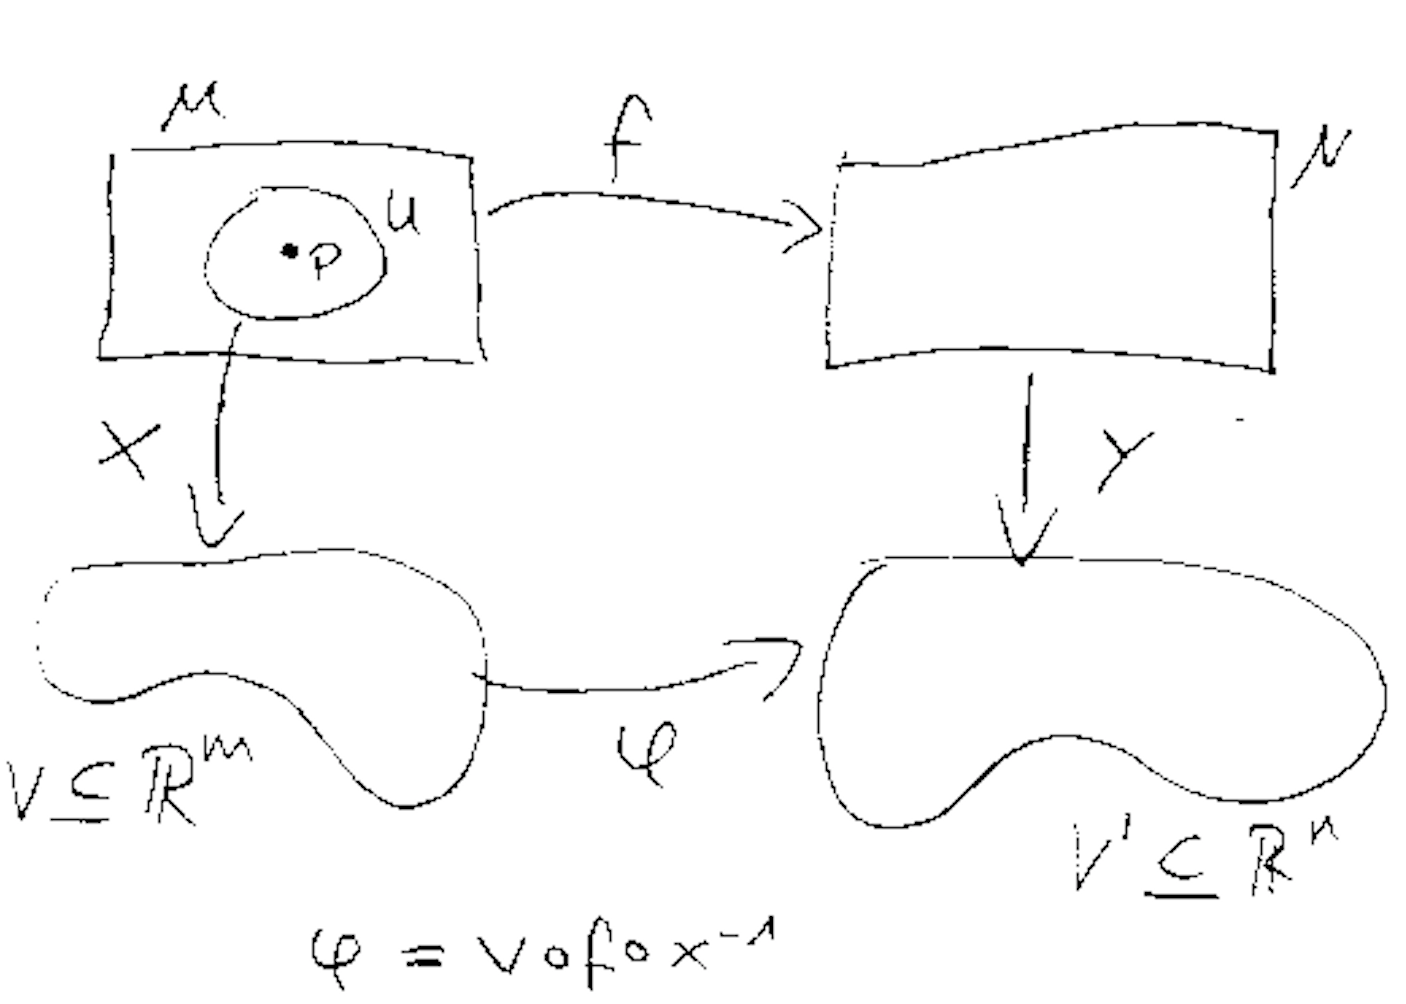 M
f
N
U
P
X
Y
φ
V ⊆ ℝ^m
V' ⊆ ℝ^n
φ = v∘f∘x^-1